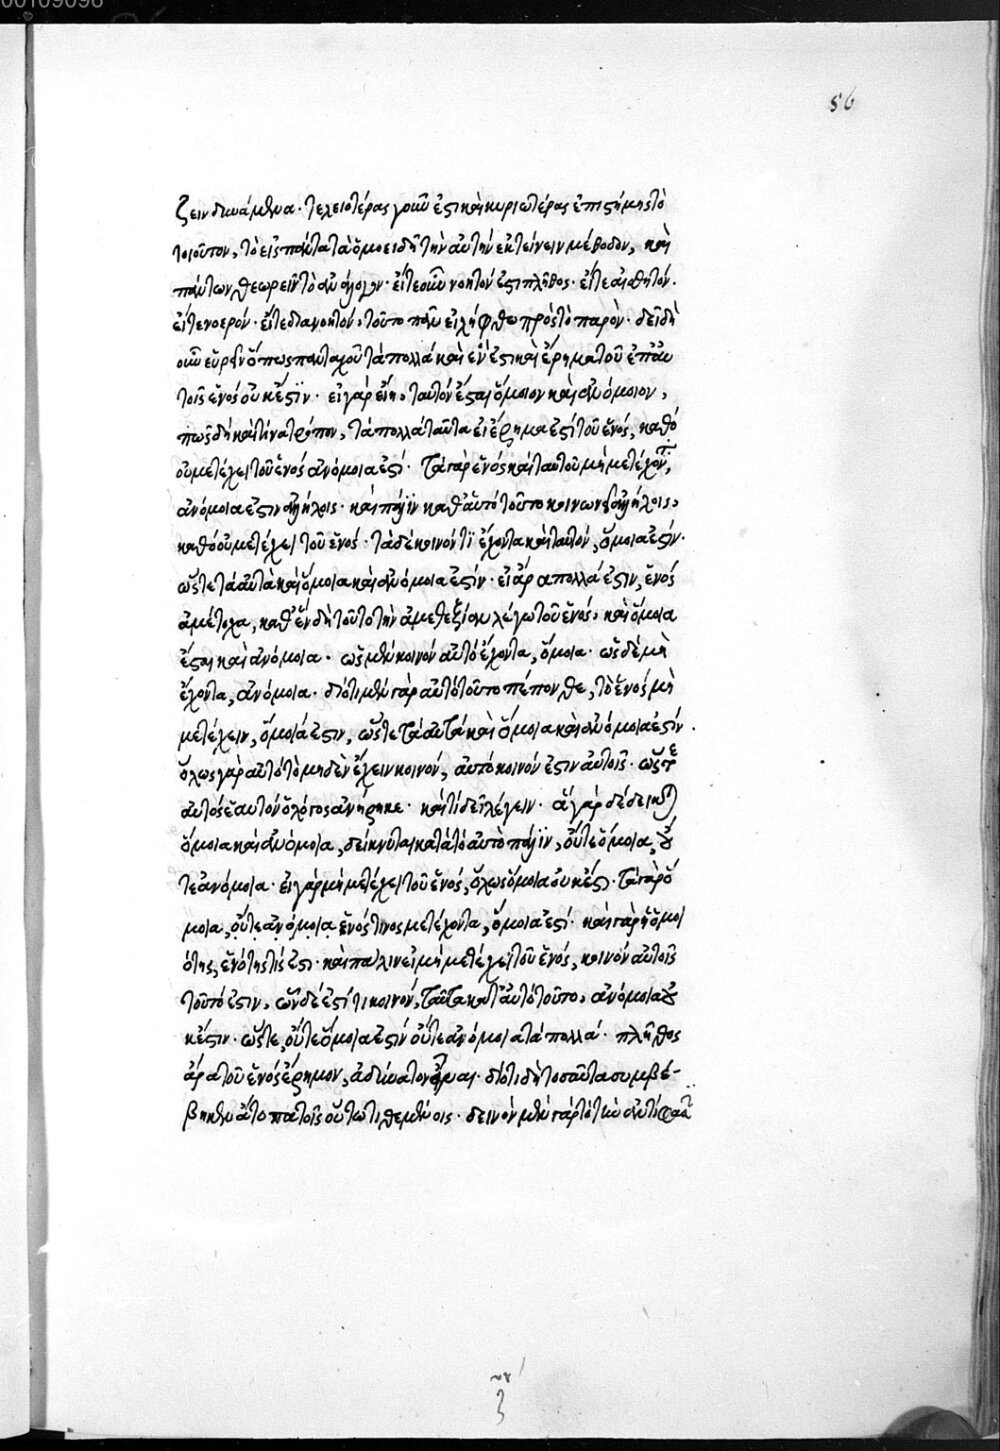 00109098
56
ζειν δυνάμενα· τελειοτέρας γοῦν ἐστι καὶ κυριωτέρας ἐπιστήμης τὸ
τοιοῦτον, τὸ εἰς πάντα τὰ ὁμοειδῆ τὴν αὐτὴν ἐκτείνειν μέθοδον, καὶ
πάντων θεωρεῖν τὸ ἀνάλογον· εἴτε οὖν νοητόν ἐστι πλῆθος· εἴτε αἰσθητόν·
εἴτε νοερόν· εἴτε διανοητόν, τοῦτο πᾶν εἰλήφθω πρὸς τὸ παρὸν· δεῖ δὴ
οὖν εὑρεῖν ὅπως πανταχοῦ τὰ πολλά καὶ ἕν ἐστι καὶ ἔρημα τοῦ ἐπ' αὐ
τοῖς ἑνός οὐκ ἔστιν· εἰ γάρ εἴη, ταυτόν ἔσται ὅμοιον καὶ ἀνόμοιον,
πῶς δὴ καὶ τίνα τρόπον, τὰ πολλά ταῦτα εἰ ἔρημα ἐστί τοῦ ἑνός, καθό
οὐ μετέχει τοῦ ἑνός ἀνόμοια ἐστί· τὰ γάρ ἑνός καὶ ταυτοῦ μὴ μετέχοντα,
ἀνόμοια ἐστιν ἀλλήλοις· καὶ πάλιν καθ' αὑτό τοῦτο κοινωνεῖ ἀλλήλοις,
καθό οὐ μετέχει τοῦ ἑνός· τὰ δέ κοινόν τι ἔχοντα καὶ ταυτόν, ὅμοια ἐστίν·
ὥστε τὰ αὐτὰ καὶ ὅμοια καὶ ἀνόμοια ἐστίν· εἰ ἄρα πολλά ἐστιν, ἑνός
ἀμέτοχα, καθ' ἕν δὴ τοῦτο τὴν ἀμεθεξίαν λέγω τοῦ ἑνός, καὶ ὅμοια
ἔσται καὶ ἀνόμοια· ὡς μὲν κοινόν αὐτό ἔχοντα, ὅμοια· ὡς δέ μὴ
ἔχοντα, ἀνόμοια· διότι μὲν γάρ αὐτό τοῦτο πέπονθε, τὸ ἑνός μὴ
μετέχειν, ὅμοιά ἐστιν, ὥστε τά αὐτά καὶ ὅμοια καὶ ἀνόμοια ἐστίν.
ὅλως γάρ αὐτό τὸ μηδὲν ἔχειν κοινόν, αὐτό κοινόν ἐστιν αὐτοῖς· ὥστε
αὐτός ἑαυτόν ὁ λόγος ἀνῄρηκε· καὶ τί δεῖ λέγειν· ἃ γάρ δέδεικται
ὅμοια καὶ ἀνόμοια, δείκνυται κατά τὸ αὐτὸ πάλιν, οὔτε ὅμοια, οὔ
τε ἀνόμοια· εἰ γάρ μὴ μετέχει τοῦ ἑνός, ὅλως ὅμοια οὐκ ἔστι· τὰ γάρ ὅ
μοια, οὔτε ἀνόμοια ἑνός τινος μετέχοντα, ὅμοια ἐστί· καὶ γάρ ἡ ὁμοι
ότης, ἑνότης τίς ἐστι· καὶ πάλιν εἰ μὴ μετέχει τοῦ ἑνός, κοινόν αὐτοῖς
τοῦτό ἐστιν, ὧν δέ ἐστί τι κοινόν, ταῦτα κατ' αὐτό τοῦτο, ἀνόμοια οὐ
κέστιν· ὥστε, οὔτε ὅμοια ἐστίν οὔτε ἀνόμοια τὰ πολλά· πλῆθος
ἄρα τοῦ ἑνός ἔρημον, ἀδύνατον εἶναι· διότι δὴ τοσαῦτα συμβέ-
βηκεν ἄτοπα τοῖς οὕτω τιθεμένοις· δεινὸν μὲν γάρ τό τὴν ἀντίφασ